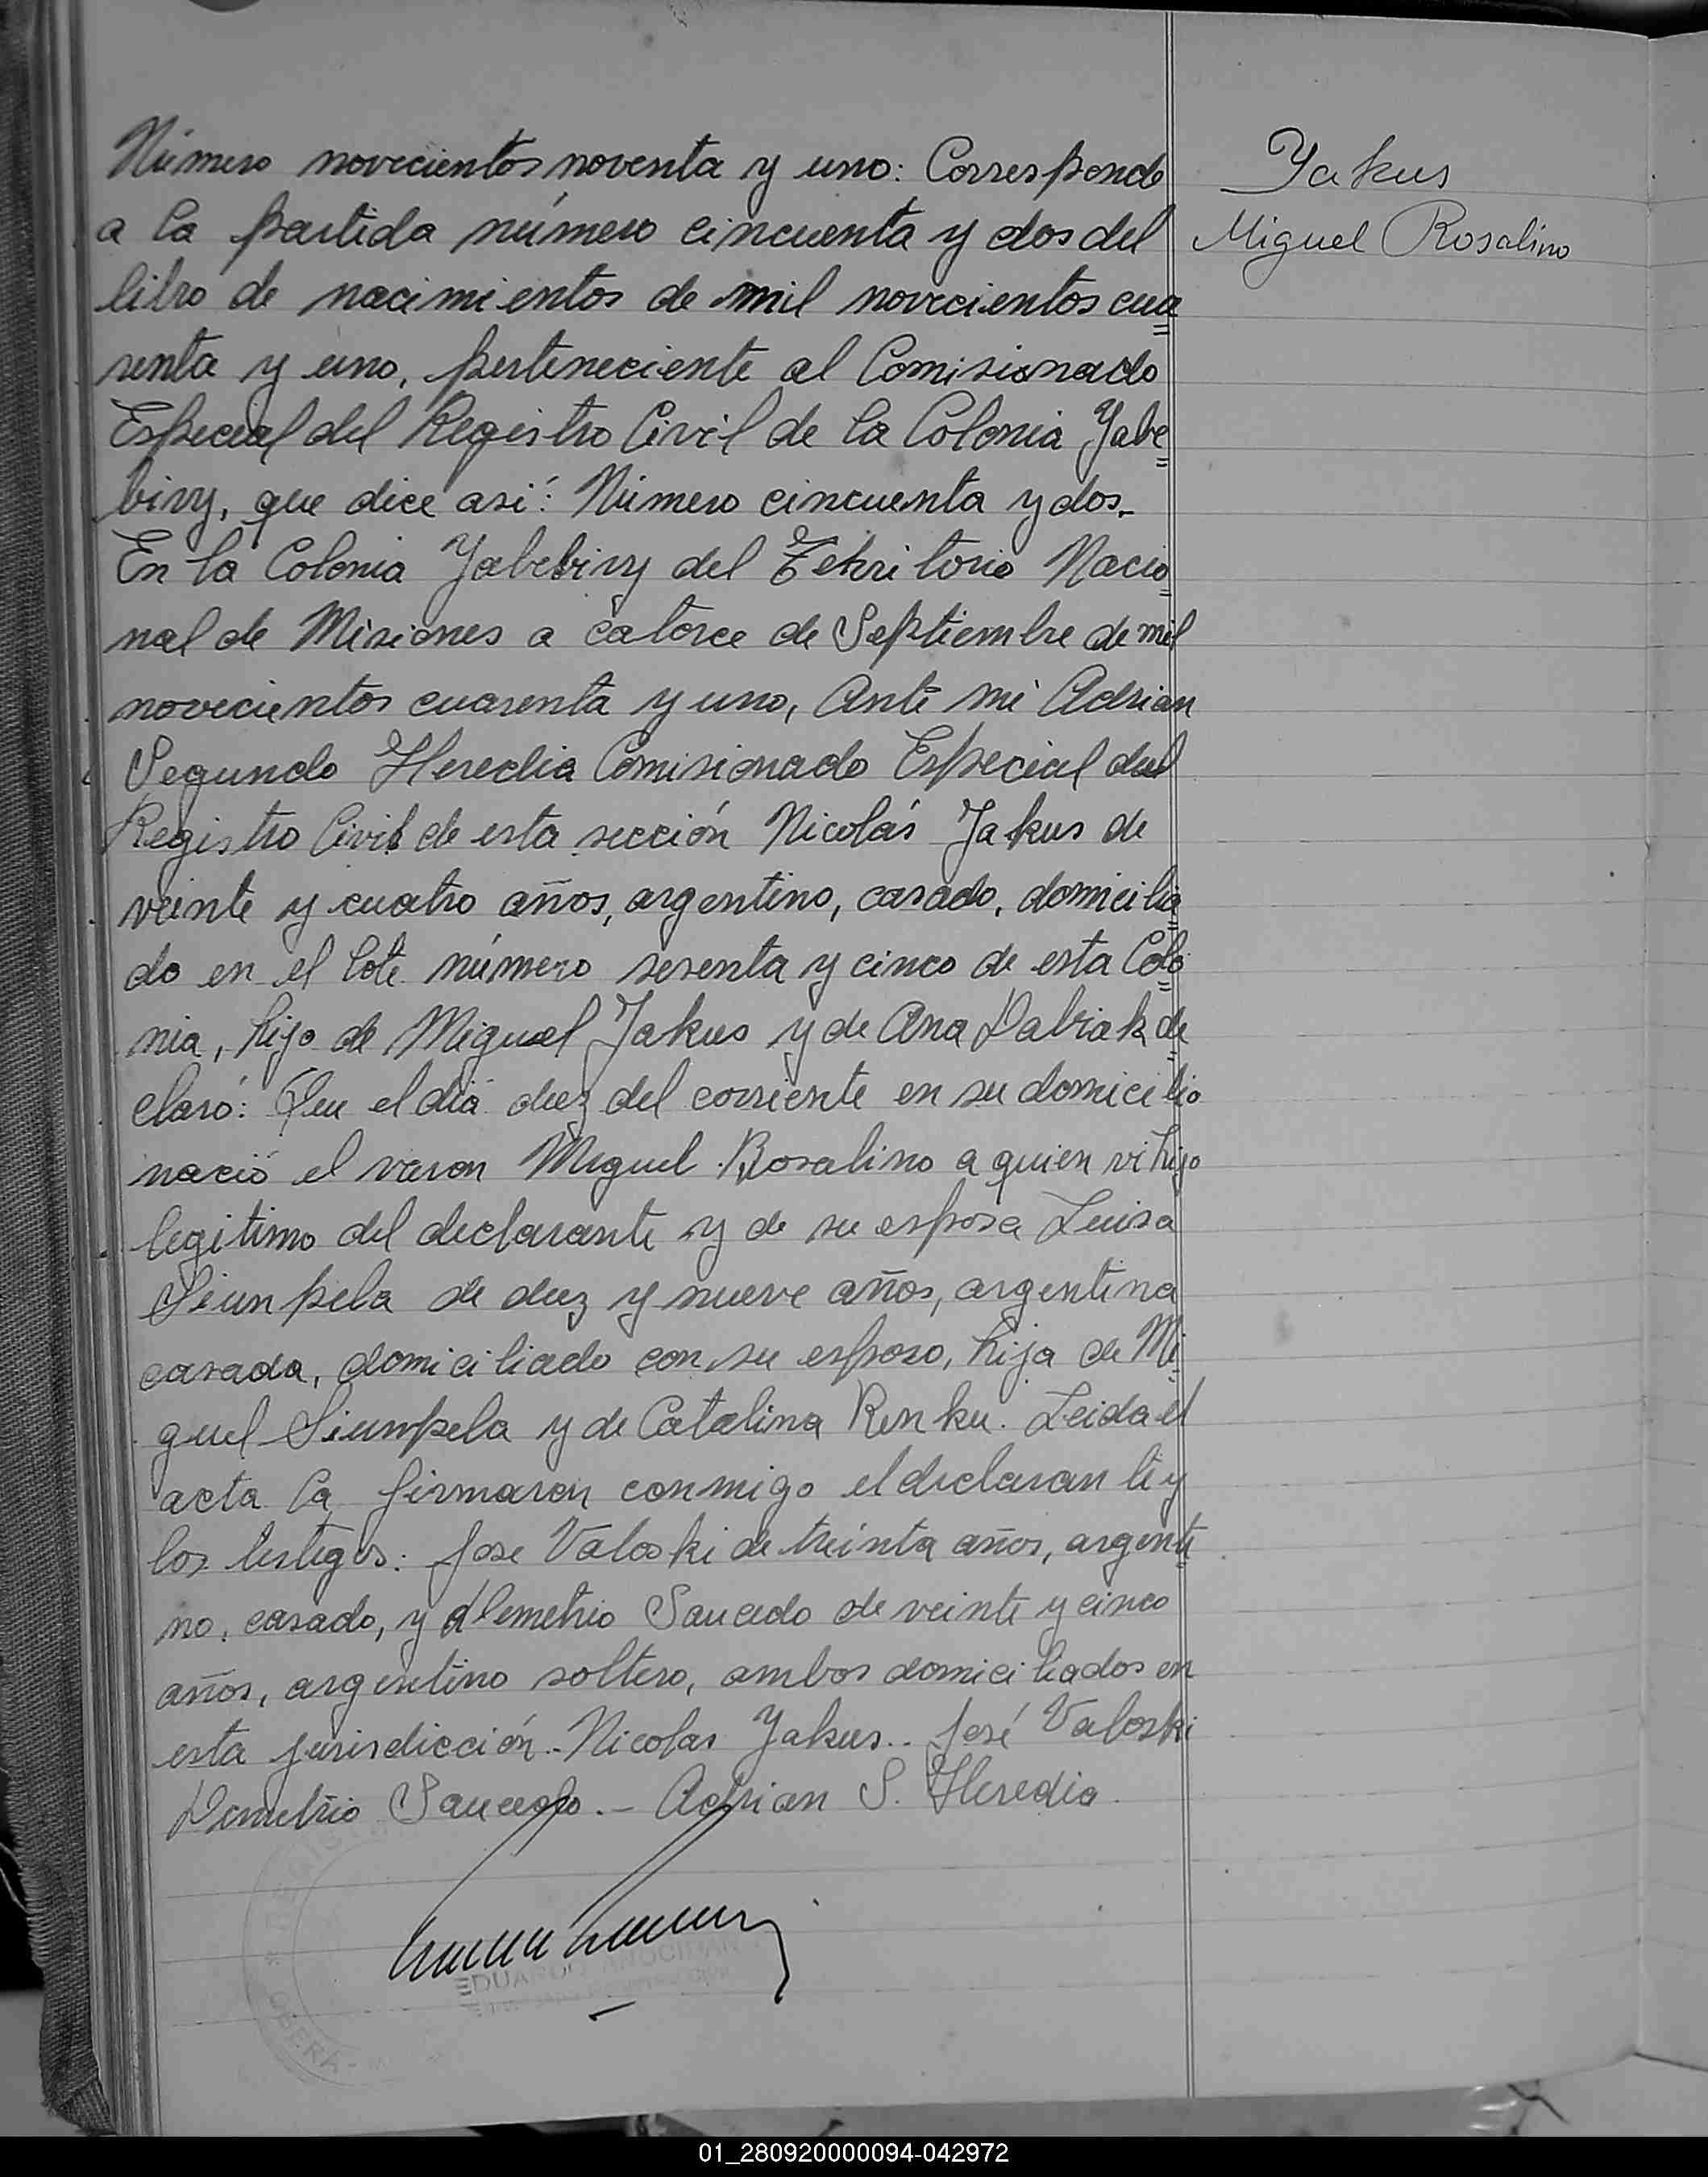 Número novecientos noventa y uno: Corresponde
a la partida número cincuenta y dos del
libro de nacimientos de mil novecientos cua
renta y uno, perteneciente al Comisionado
Especial del Registro Civil de la Colonia Yabe
biry, que dice así: Número cincuenta y dos.-
En la Colonia Yabebiry del Territorio Nacio
nal de Misiones a catorce de Septiembre de mil
novecientos cuarenta y uno, Ante mi Adrian
Segundo Heredia Comisionado Especial del
Registro Civil de esta sección Nicolás Yakus de
veinte y cuatro años, argentino, casado, domicilia
do en el lote número sesenta y cinco de esta Colo
nia, hijo de Miguel Yakus y de Ana Dabiak de
claró: Que el día diez del corriente en su domicilio
nació el varon Miguel Rosalino a quien vi hijo
legitimo del declarante y de su esposa Luisa
Siunpela de diez y nueve años, argentina
casada, domiciliado con su esposo, hija de Mi
guel Siunpela y de Catalina Renku. Leida el
acta la firmaron conmigo el declarante y
los testigos: Jose Valoski de treinta años, argenti
no, casado, y Demetrio Saucedo de veinte y cinco
años, argentino soltero, ambos domiciliados en
esta jurisdicción.- Nicolas Yakus.. José Valoski
Demetrio Saucedo.- Adrian S. Heredia.
Yakus
Miguel Rosalino
EDUARDO
OBERÁ
01_280920000094-042972